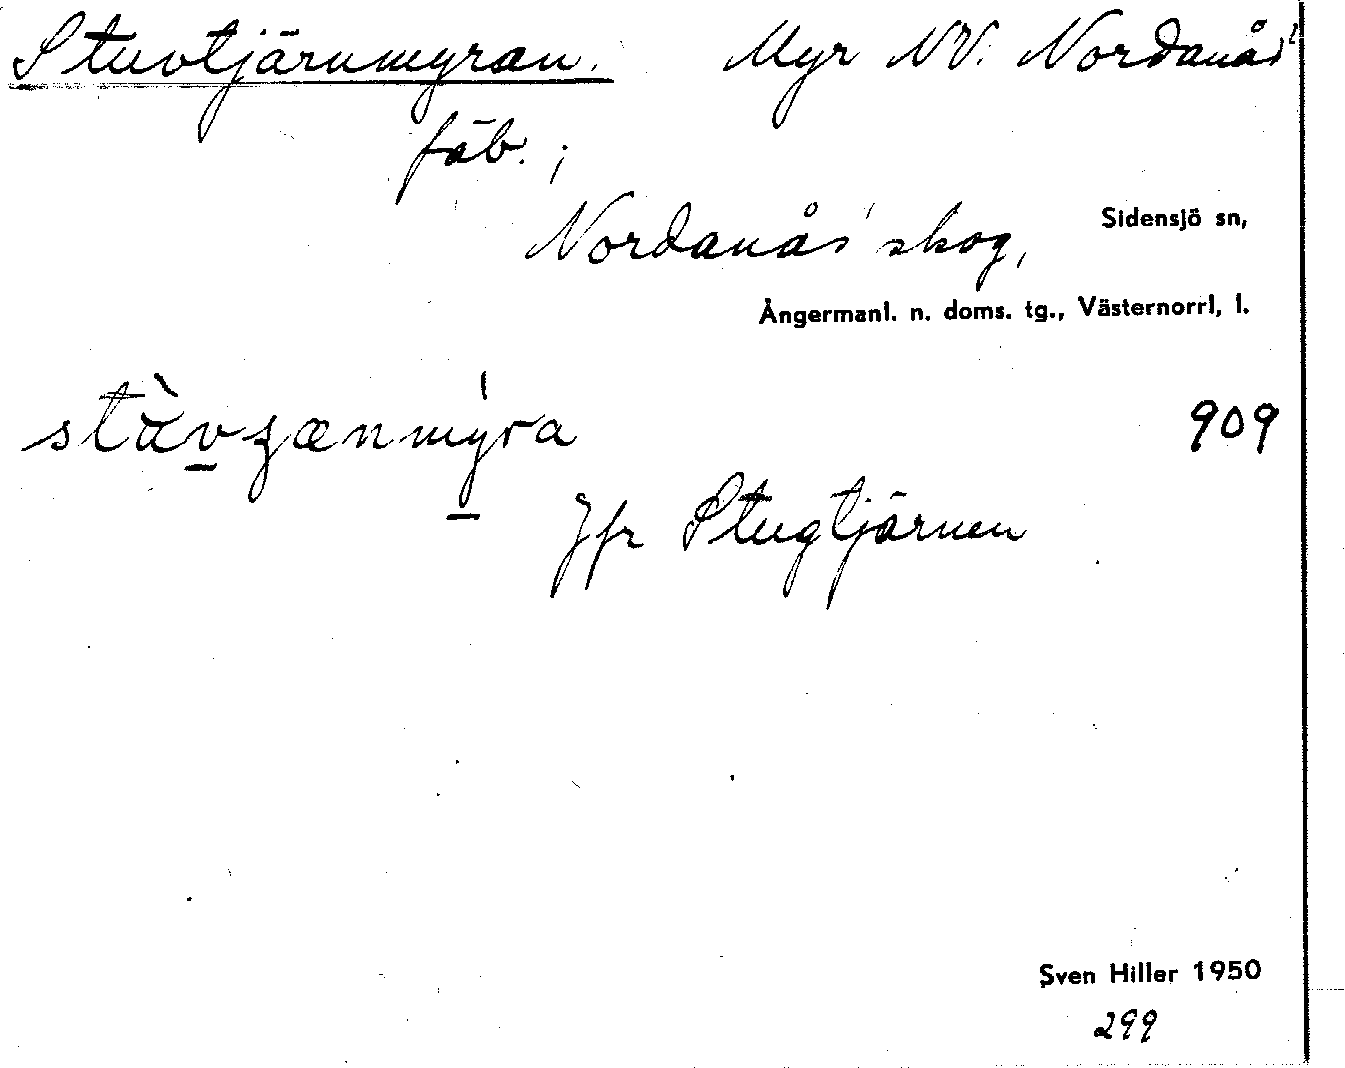 Stuvtjärnmyran. Myr NV. Nordanås'
fäb. ;
Nordanås' skog, Sidensjö sn,
Ångermanl. n. doms. tg., Västernorrl, l.
909
Jfr Stugtjärnen
Sven Hiller 1950
299